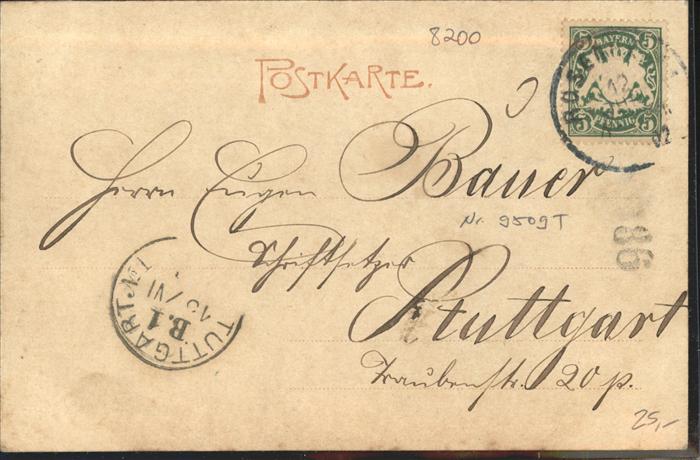 8200
POSTKARTE.
BAYERN
5 5
5 5
PFENNIG
12
02
Herrn Eugen Bauer
Nr. 9509T
Schriftsetzer
86
Stuttgart
TUTTGART
B.1
13/VI
Traubenstr. 20 p.
25,-